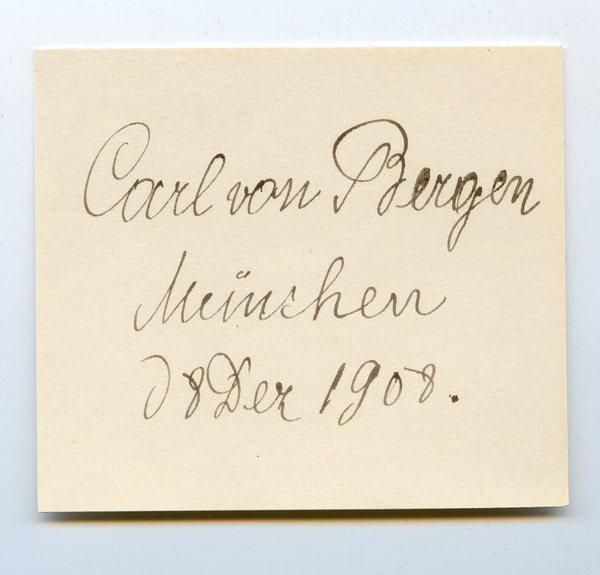 Carl von Bergen
München
d 8 Dez 1908.